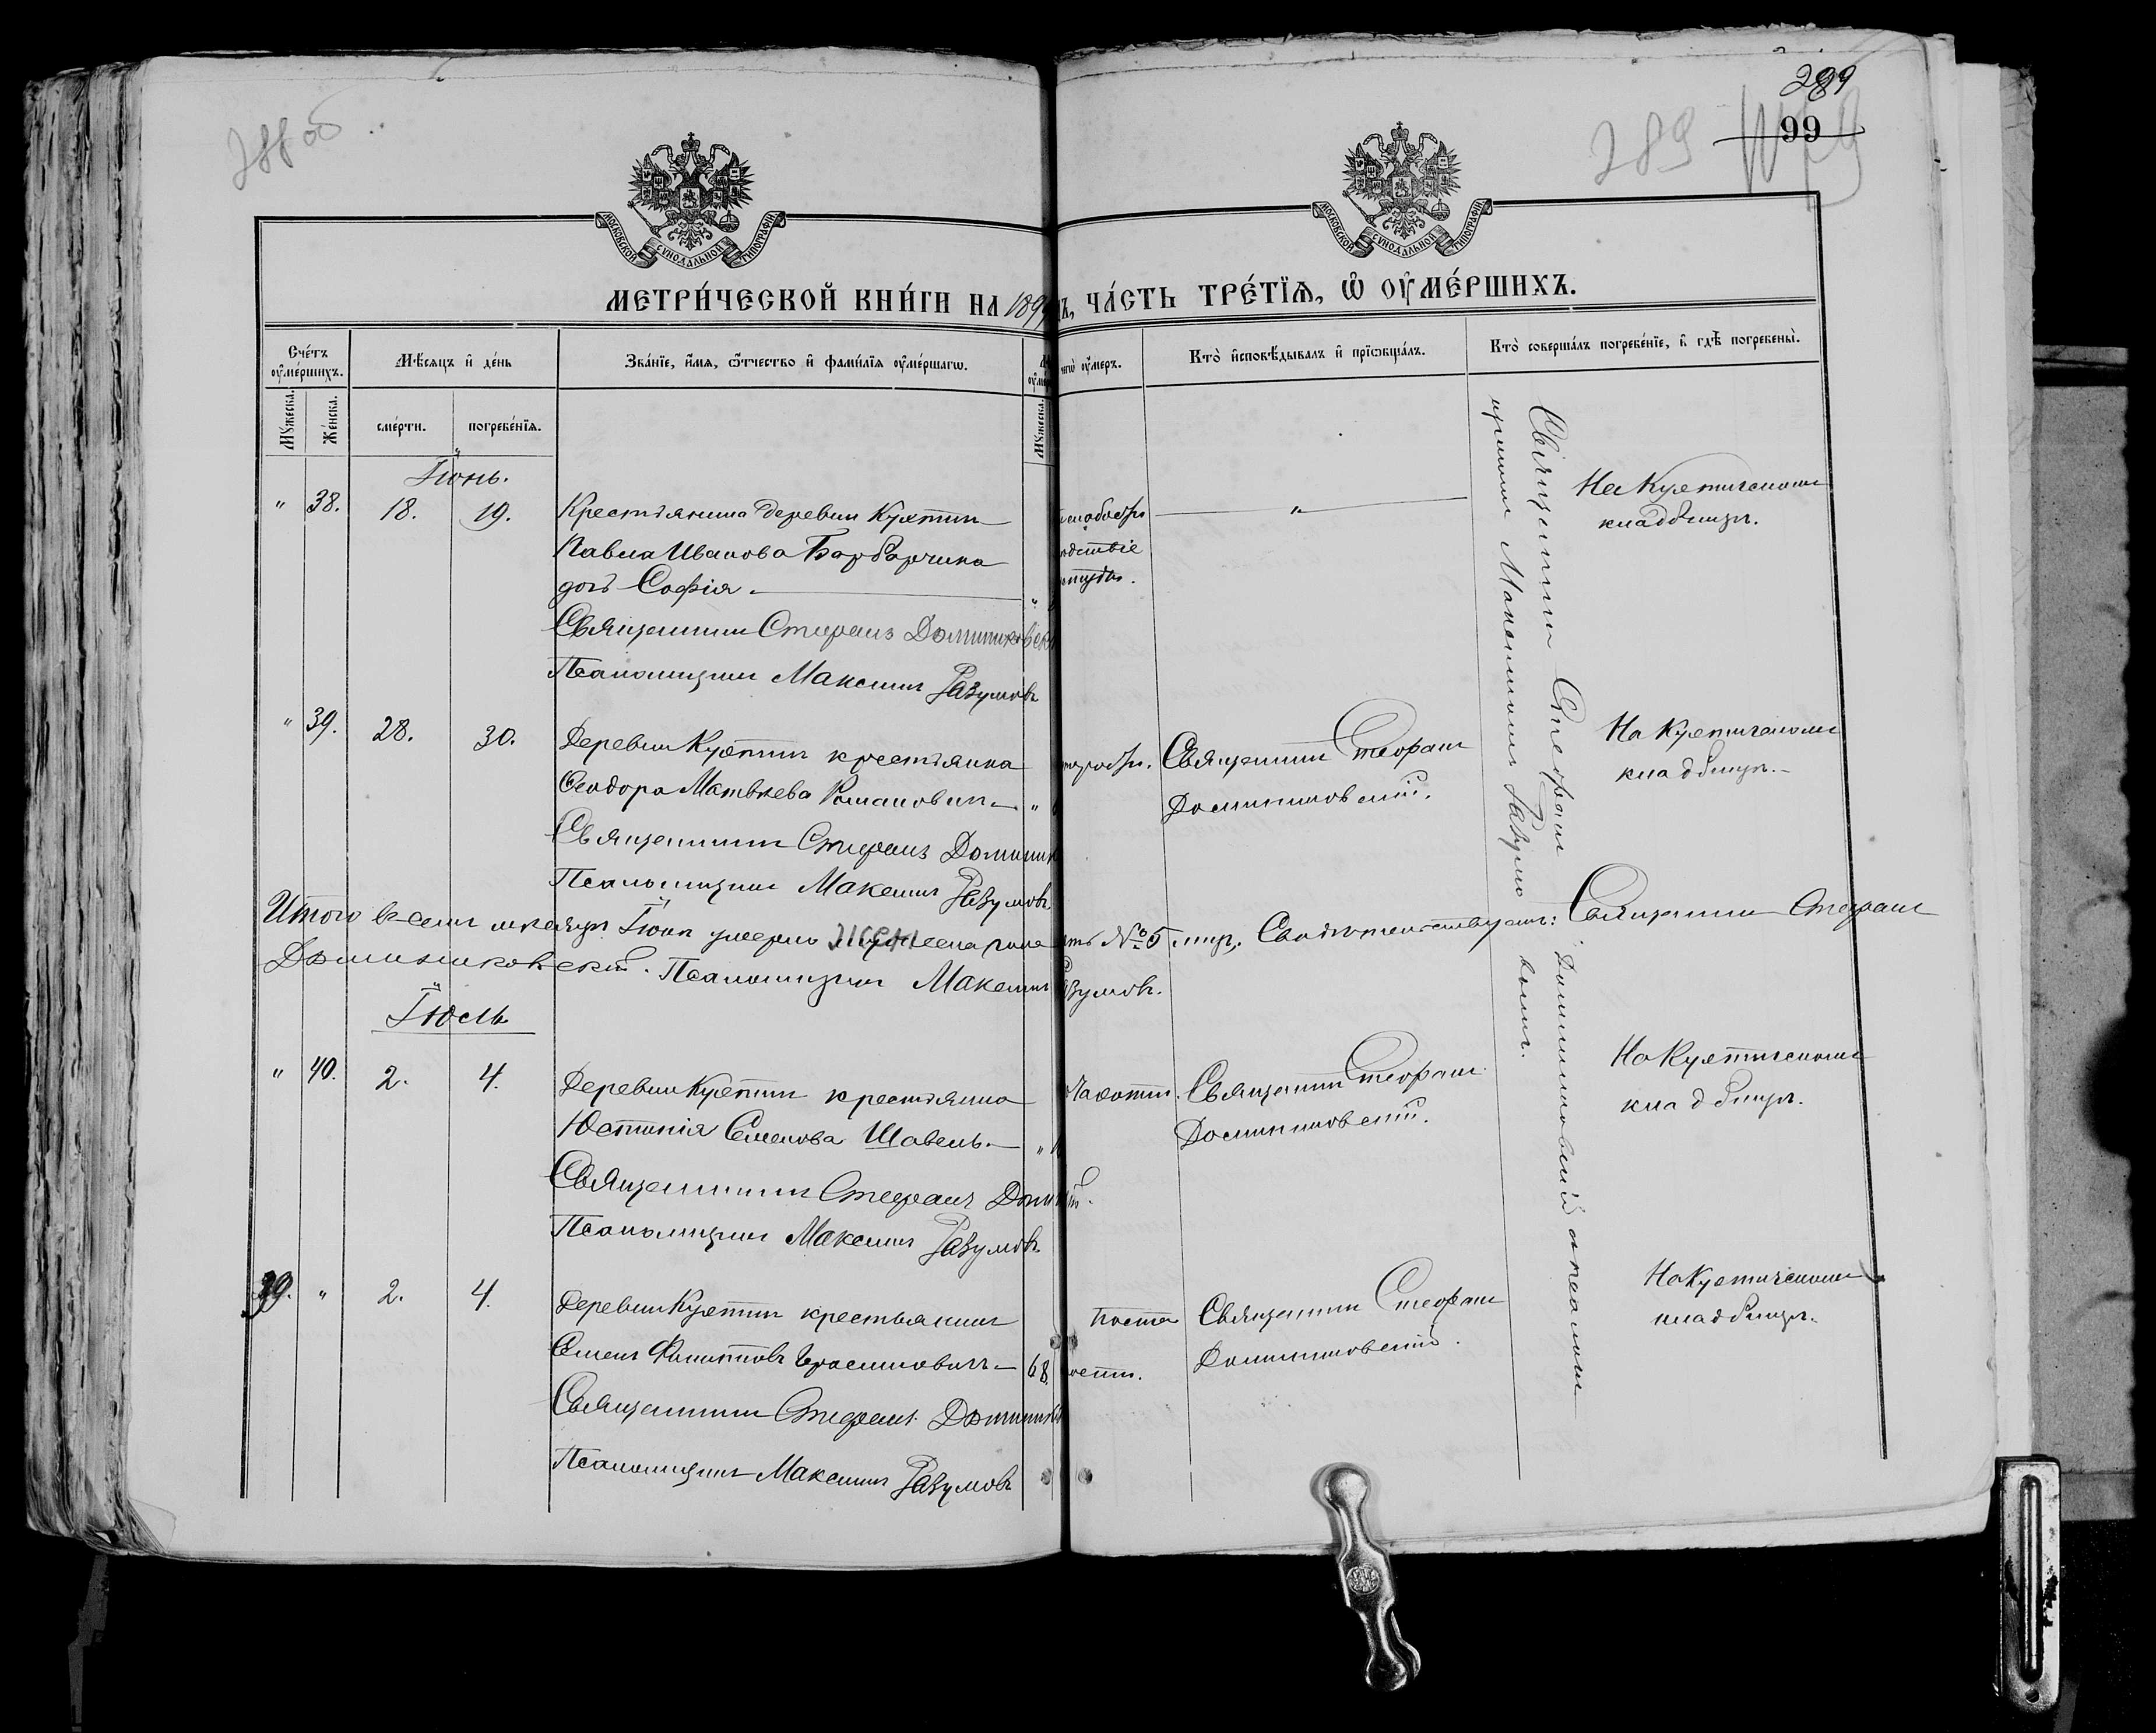 288 об
289
289
99
МОСКОВСКОЙ СУНОДАЛЬНОЙ ТИПОГРАФІИ
МОСКОВСКОЙ СУНОДАЛЬНОЙ ТИПОГРАФІИ
МЕТРИ́ЧЕСКОЙ КНИ́ГИ НА 189
Ъ, ЧА́СТЬ ТРЕ́ТІѦ, Ѡ ОУ҆МЕ́РШИХЪ.
Сче́тъ оу҆ме́ршихъ.
Мѣ́сѧцъ и҆ де́нь
Зва́нїе, и҆́мѧ, ѻ҆́тчество и҆ фами́лїѧ оу҆ме́ршагѡ.
чегѡ̀ оу҆́меръ.
Кто̀ и҆сповѣ́дывалъ и҆ прїѡбща́лъ.
Кто̀ соверша́лъ погребе́нїе, и҆ гдѣ̀ погребены̀.
Мꙋ́жеска.
Же́нска.
сме́рти.
погребе́нїѧ.
Мꙋ́жеска.
Іюнь.
" 38. 18. 19. Крестьянина деревни Кухтич
Павла Иванова Барбарчика
дочь Софія. "
Священникъ Стефанъ Доминиковск
Псаломщикъ Максимъ Разумовъ
"
На Кухтичскомъ
кладбищѣ.
" 39. 28. 30. Деревни Кухтич крестьянка
Ѳеодора Матвѣева Романович "
Священникъ Стефанъ Доминик
Псаломщикъ Максимъ Разумовъ
Священникъ Стефанъ
Доминиковскій.
На Кухтичскомъ
кладбищѣ.
Итого въ семъ мѣсяцѣ Іюнѣ умерло № 5 Свидѣтельствуемъ: Священникъ Стефанъ
Доминиковскій. Псаломщикъ Максимъ Разумовъ.
Іюль
" 40. 2. 4. Деревни Кухтич крестьянка
Юстинія Семенова Щавель. "
Священникъ Стефанъ
Псаломщикъ Максимъ Разумовъ
Священникъ Стефанъ
Доминиковскій.
На Кухтичскомъ
кладбищѣ.
39. " 2. 4. Деревни Кухтич крестьянинъ
Семенъ Филипповъ Герасимовичъ 68.
Священникъ Стефанъ Доминико
Псаломщикъ Максимъ Разумовъ
Священникъ Стефанъ
Доминиковскій.
На Кухтичскомъ
кладбищѣ.
Священникъ Стефанъ Доминиковскій съ псаломщикомъ Максимомъ Разумовымъ.